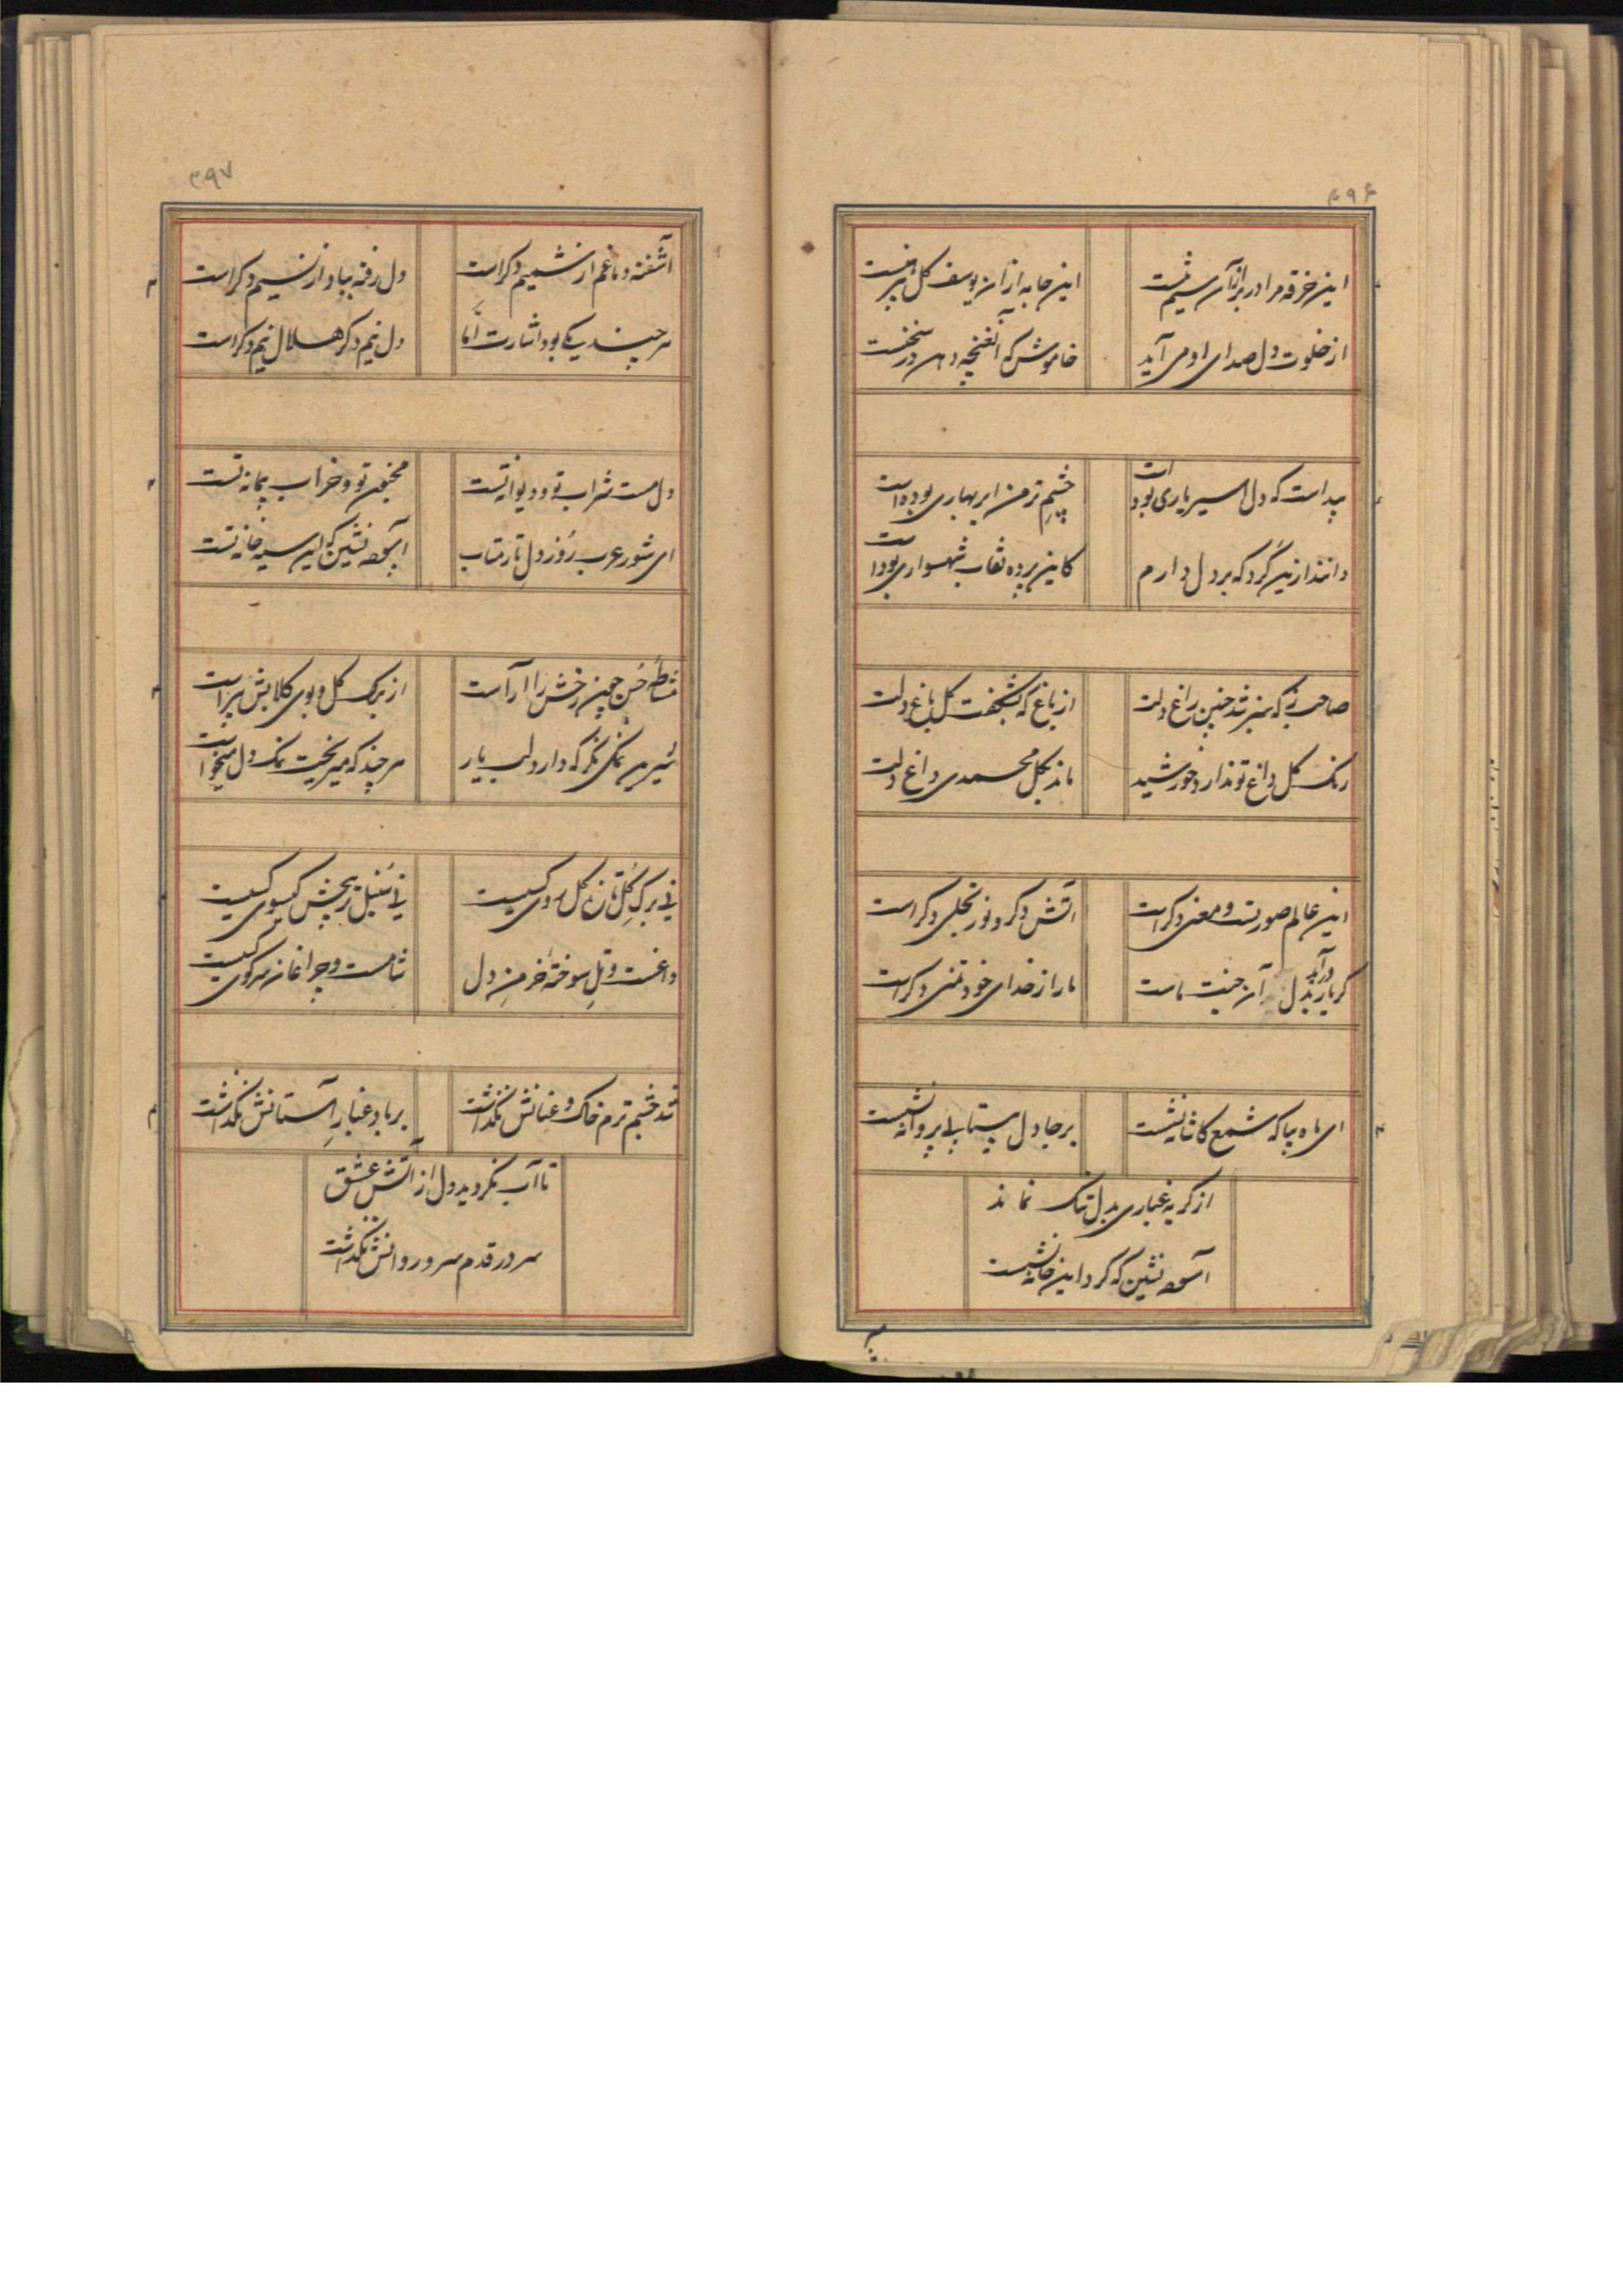 ۴۹۶
این خرقه مرا در بر ازان سیم تنست
این جامه ازان یوسف گل پیرهنست
از خلوت دل صدای او می آید
خاموش که آن غنچه دهن در سخنست
پیداست که دل اسیر یاری بوده است
چشم تر من ابر بهاری بوده است
دانند ازین گرد که بر دل دارم
کاین پرده نقاب شهسواری بوده است
صاحب که بمنبر شد چنین داغ دلت
از باغ که بشکفت گل باغ دلت
رنگ گل داغ تو ندارد خورشید
ماند بگل محمدی داغ دلت
این عالم صورتست و معنی دگر است
آتش دگر و نور تجلی دگر است
گر یار بدل درآید آن جنت ماست
ما را ز خدای خود تمنی دگر است
ای ماه بیا که شمع کاشانه نشست
بر جا دل بیتاب پروانه نشست
از گریه غباری بدل تنگ نماند
آسوده نشین که گرد این خانه نشست
۳۹۷
آشفته دماغم از شمیم دگر است
دل رفته بباد از نسیم دگر است
هر چند یکی بود اشارت اما
دل نیم دگر هلال نیم دگر است
دل مست شراب تو و دیوانه تست
مجنون تو و خراب پیمانه تست
ای شور عرب ز روزن دل تار متاب
آسوده نشین که این سیه خانه تست
مشاطه حسن چون رخش را آراست
از برگ گل و بوی گلابش پیراست
شیرین نمکی نگر که دارد لب یار
هر چند که میریخت نمک دل میخواست
نی برگ گل تازه گل روی کسیست
نی سنبل تر پیچش گیسوی کسیست
داغست و تل سوخته خرمن دل
شامست و چراغان سر کوی کسیست
شد چشم ترم خاک و عنانش نگذاشت
بر باد غبار آستانش نگذاشت
تا آب نگردید دل از آتش عشق
سر در قدم سرو روانش نگذاشت